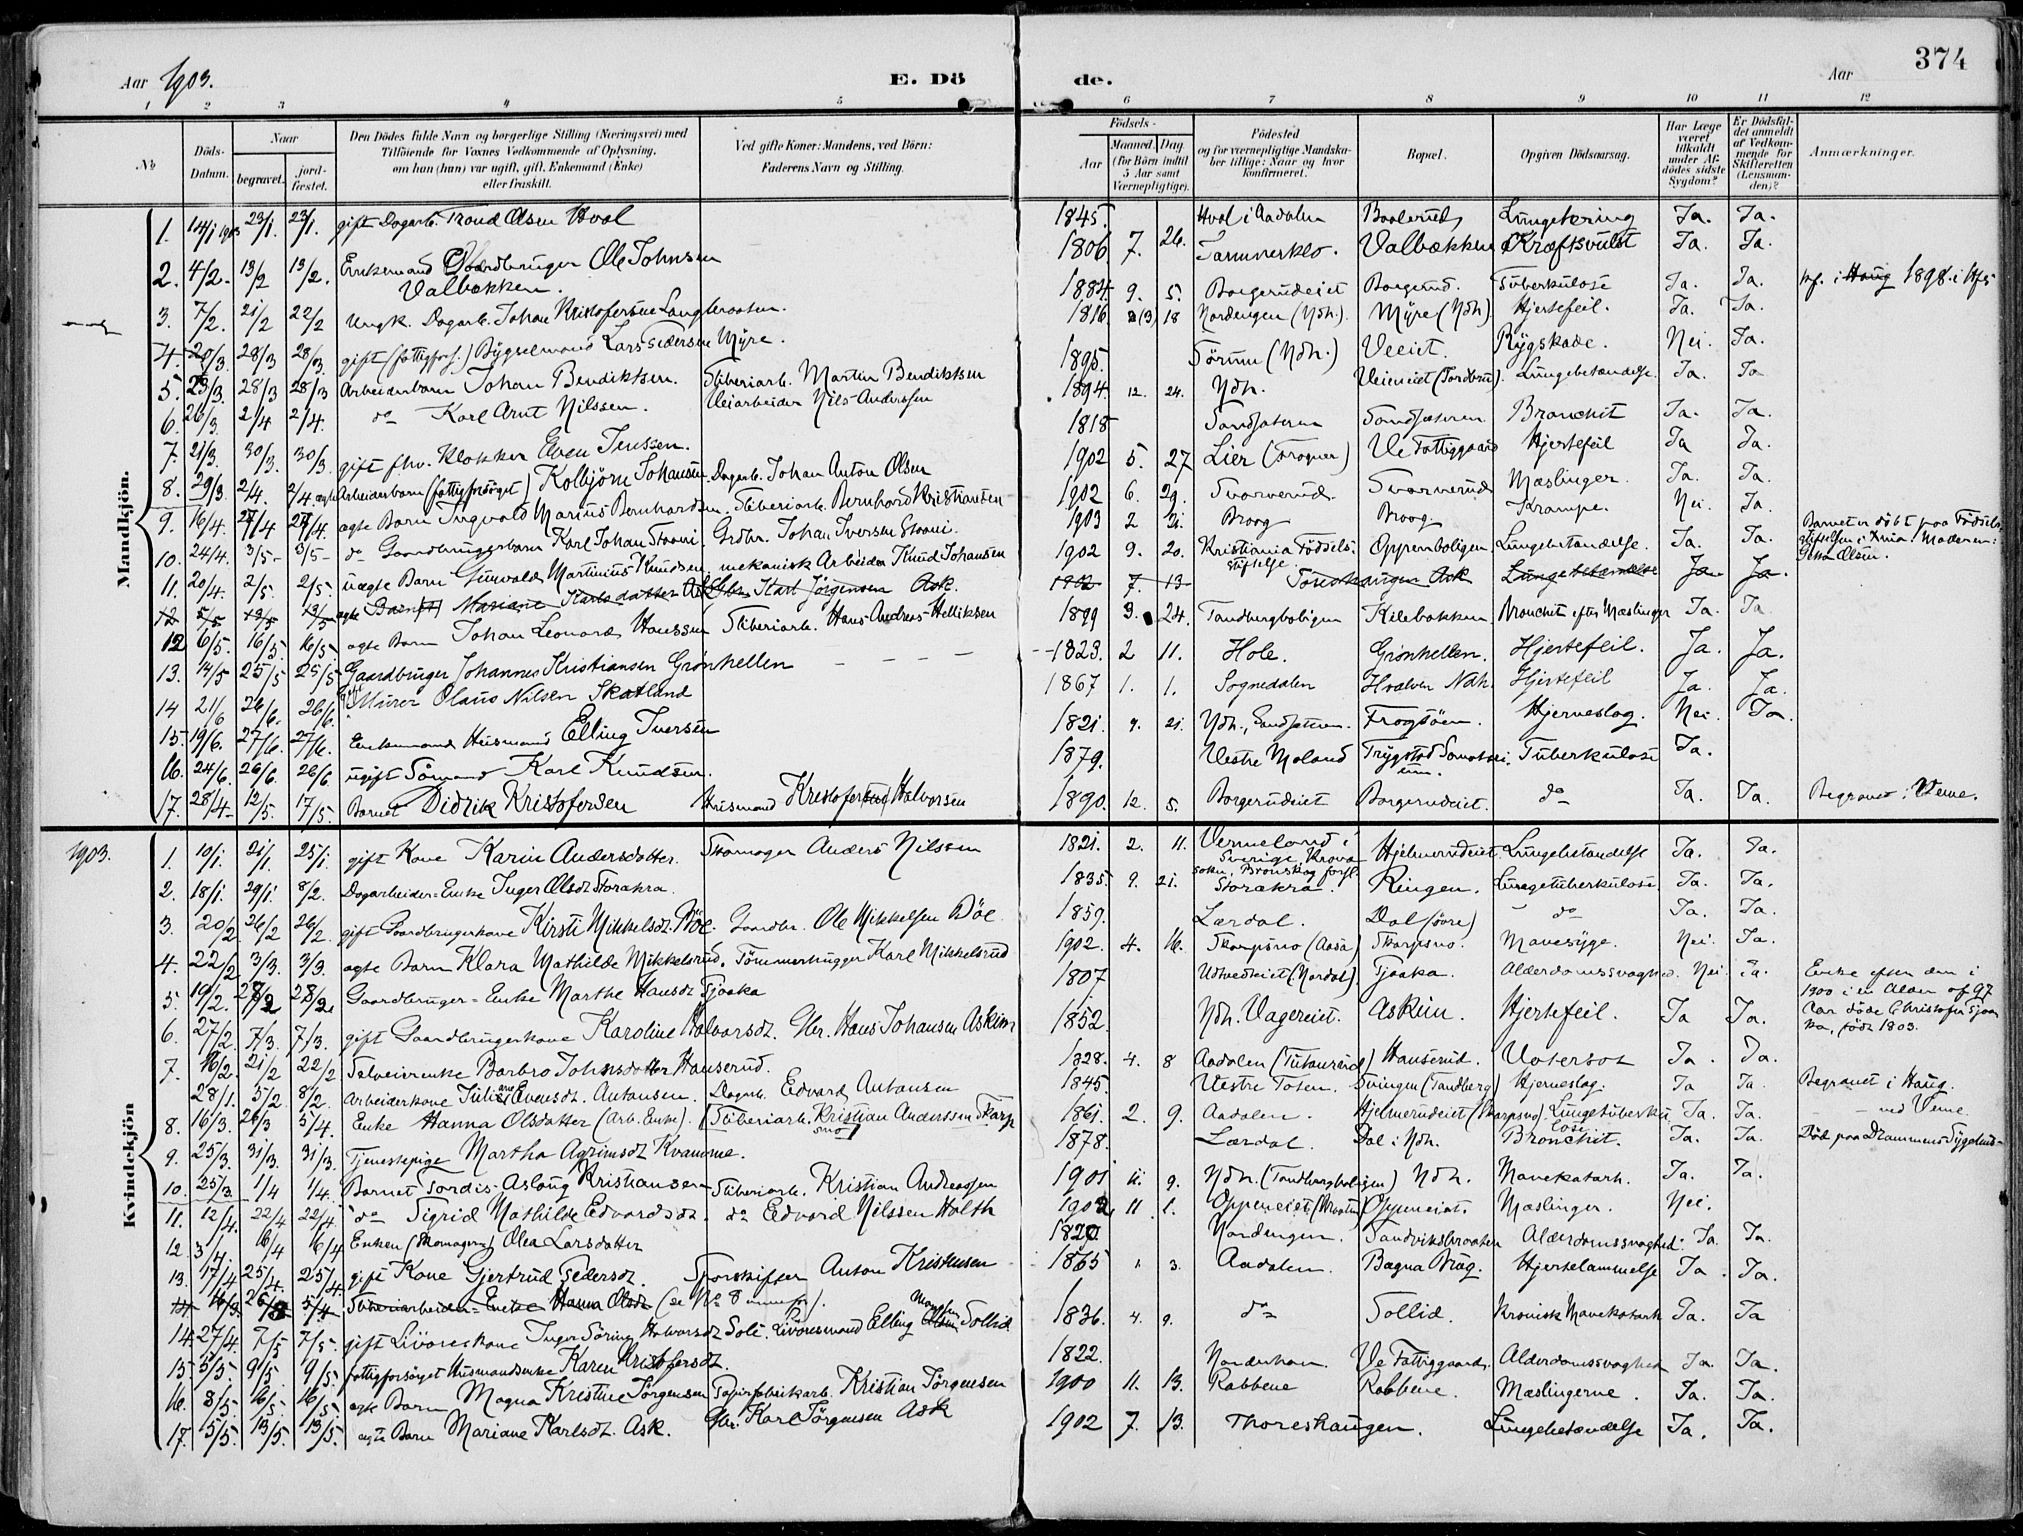 374
Aar 1903.
E. Dö
de.
Aar
1 2 3 4 5 6 7 8 9 10 11 12
No
Döds-Datum.
Naar
begravet.
jord-fæstet.
Den Dödes fulde Navn og borgerlige Stilling (Næringsvei) med
Tilföiende for Voxnes Vedkommende af Oplysning,
om han (hun) var ugift, gift, Enkemand (Enke)
eller fraskilt.
Ved gifte Koner: Mandens, ved Börn:
Faderens Navn og Stilling.
Födsels-
Aar
Maaned. Dag
(for Börn indtil
5 Aar samt
Værnepligtige).
Födested
og for værnepligtige Mandska-
ber tillige: Naar og hvor
konfirmeret.
Bopæl.
Opgiven Dödsaarsag.
Har Læge
været
tilkaldt
under Af-
dödes sidste
Sygdom?
Er Dödsfal-
det anmeldt
af Vedkom-
mende for
Skifteretten
(Lensman-
den)?
Anmærkninger.
Mandkjön.
1. 14/1 1903 23/1. 23/1. gift Dagarb. Trond Olsen Hval 1845 Hval i Aadalen Lungetæring Ja. Ja.
2. 4/2. 13/2 13/2. Enkemand Gaardbruger Ole Johnsen Valbækken. 1806 7. 26. Valbækken Kræftsvulst Ja. Ja.
3. 7/2. 21/2 22/2 Ungk. Dagarb. Johan Kristofersen 1884. 9. 5. Borgerudeiet Borgerud. Tuberkulose Ja. Ja. 1898
4. 20/3 28/3 28/3. gift (fattigfors.) Bygselmand Lars Pedersen Myre. 1816 18 Nordengen (Ndh.). Myre (Ndh) Hjertefeil. Ja. Ja.
5. 23/3 28/3 28/3 Arbeiderbarn Johan Bendiktsen. Sliberiarb. Martin Bendiktsen 1895. Sörum (Ndh.) Veeiet. Rygskade. Nei. Ja.
6. 26/3. 2/4 2/4. do Karl Arnt Nilssen. Veiarbeider Nils Anderssen 1894. 12. 24. Ndh. Lungebetændelse. Ja. Ja
7. 21/3. 30/3. 30/3. gift fhv. Klokker Even Jenssen. 1818 Bronchit Ja. Ja.
8. 29/3. 2/4. 2/4. ægte Arbeiderbarn (fattigforsörget) Kolbjörn Johansen. Dagarb. Johan Anton Olsen 1902 5. 27 Lier (Frogner) Ve Fattiggaard Hjertefeil Ja Ja.
9. 16/4. 27/4 27/4. ægte Barn Ingvald Marius Bernhardsen. Sliberiarb. Bernhard Kristiansen 1902 6. 29. Svarverud. Svarverud Mæslinger. Ja. Ja.
10. 24/4. 3/5 3/5 do Gaardbrugerbarn Karl Johan Grdbr. Johan Iversen 1903 2 21. Braag Braag Krampe. Nei. Ja.
11. 20/4. 2/5 2/5. uægte Barn Martinius Knudsen. mekanisk Arbeider Knud Johansen 1902 9. 20. Kristiania Födselsstiftelse Oppenboligen. Lungebetændelse. Ja. Ja. Barnet er döbt paa Födselsstiftelsen i Kria. Moderen: Olsen.
12 5/5 13/5 13/5 ægte Barn Mariane Karlsdatter Ask Gbr. Karl Jörgensen Ask. 1902 7. 13 Toreshaugen Ask Lungebetændelse Ja. Ja.
12 6/5. 16/5 16/5 ægte Barn Johan Leonard Hanssen Sliberiarb. Hans Andreas Helliksen 1899 3. 24. Tandbergboligen Kilebakken Bronchit efter Mæslinger Ja. Ja
13. 14/5 25/5 25/5 Gaardbruger Johannes Kristiansen Grönhellen 1823. 2 11. Hole. Grönhellen. Hjertefeil. Ja. Ja.
14 21/6 26/6. 26/6. gift Murer Olaus Nilsen Skatland 1867 1. 1. Sognedalen Hvalven Ndh. Hjertefeil Ja. Ja.
15. 19/6. 27/6. 27/6. Enkemand Husmand Elling Iversen 1821. 9. 21. Ndh., Frogsöen. Hjerneslag. Nei. Ja.
16. 24/6. 26/6. 26/6. ugift Sömand Karl Knudsen. 1879. Vestre Moland Sanatorium. Tuberkulose Ja.
17. 28/4 12/5. 17/5. Barnet Didrik Kristofersen Husmand Kristofer Halvorsen 1890. 12. 5. Borgerudeiet Borgerudeiet. do Ja. Ja. Begravet i Veme.
Kvindekjön
1903.
1. 10/1. 21/1. 25/1. gift Kone Karin Andersdatter. Skomager Anders Nilssen 1821. 2. 11. Vermeland i Sverige, Hjelmerudeiet Lungebetændelse Ja. Ja.
2. 18/1. 29/1. 8/2. Dagarbeider-Enke Inger Olsdt. Storakra. 1835. 9. 21. Storakra. Ringen. Lungetuberkulose. Ja. Ja.
3. 20/2. 26/2 26/2. gift Gaardbrugerkone Kirsti Mikkelsdt. Böe. Gaardbr. Ole Mikkelsen Böe 1859. Lærdal. Dal (övre) do Ja. Ja.
4. 22/2. 3/3. 3/3. ægte Barn Klara Mathilde Mikkelsrud. Tömmerhugger Karl Mikkelsrud 1902. 4. 16. Skarpsno (Aasa) Skarpsno. Mavesyge. Nei. Ja.
5. 19/2. 28/2 28/2. Gaardbruger-Enke Marthe Hansdt. Tjoaka 1807 (Nordal) Tjoaka. Alderdomssvaghed. Nei. Ja. Enke efter den i 1900 i en Alder af 97 Aar döde Christofer Tjoaka, född 1803.
6. 27/2. 7/3. 7/3. gift Gaardbrugerkone Karoline Halvorsdt. Gbr. Hans Johansen Askim 1852. Ndh. Vagereiet. Askim. Hjertefeil. Ja Ja.
7. 16/2. 21/2 22/2 Selveierenke Barbro Johnsdatter Hanserud. 1828. 4. 8 Aadalen Hanserud. Vatersot Ja. Ja.
28/1. 5/2 8/2. Arbeiderkone Juliane Evensdt. Antonsen. Dagarb. Edvard Antonsen 1845. Vestre Toten. Svingen (Tandberg) Hjerneslag. Ja Ja. Begravet i Haug.
8. 16/3. 26/3 5/4. Enke Hanna Olsdatter (Arb. Enke). Sliberiarb. Kristian Anderssen Skarpsno 1861. 2. 9. Aadalen. Hjelmerudeiet (Skarpsno) Lungetuberkulose Ja. Ja. ved Veme.
9. 25/3. 31/3. 31/3. Tjenestepige Martha Kvamme. 1878. Lærdal. Dal i Ndh. Bronchit. Ja. Ja. Död paa Drammens Sygehus
10. 25/3 1/4 1/4. Barnet Tordis Aslaug Kristiansen Sliberiarb. Kristian Andreassen 1901 11. 9. Ndh. (Tandbergboligen) Ndh. Mavekatarh. Ja. Ja.
11. 12/4. 22/4 22/4 do Sigrid Mathilde Edvardsdt. do Edvard Nilssen Holth 1902. 11. 1. Oppeneiet Oppeneiet. Mæslinger. Nei.
12. 3/4. 16/4 16/4 Enken (Skomagerens) Olea Larsdatter 1820 Nordengen. Sandviksbraaten Alderdomssvaghed. Ja. Ja.
13. 17/4 25/4. 25/4. gift Kone Gjertrud Pedersdt. Sporskifter Anton Kristensen 1865 3. Aadalen. Bagna Bråg. Hjertelammelse Ja. Ja.
14. 16/3 26/3 5/4 Sliberiarbeider-Enke Hanna Olsdt. (se No 8 ovenfor).
14. 27/4. 7/5 7/5. gift Livöreskone Inger Söring Halvorsdt. Soli. Livöresmand Elling Olsen Sollid 1836. 4. 9. do Sollid. Kronisk Mavekatarh Ja. Ja
15. 5/5. 9/5. 9/5. fattigforsörget Husmandsenke Karen Kristofersdt. 1822. Norderhov. Ve Fattiggaard. Alderdomssvaghed Ja. Ja.
16. 8/5. 16/5. 16/5. ægte Barn Magna Kristine Jörgensen Papirfabrikarb. Kristian Jörgensen 1900 11. 13. Rabbene Rabbene. Mæslingerne. Ja. Ja.
17. 5/5. 13/5. 13/5. ægte Barn Mariane Karlsdt. Ask. Gbr. Karl Jörgensen Ask 1902 7. 13. Thoreshaugen. Lungebetændelse Ja. Ja.